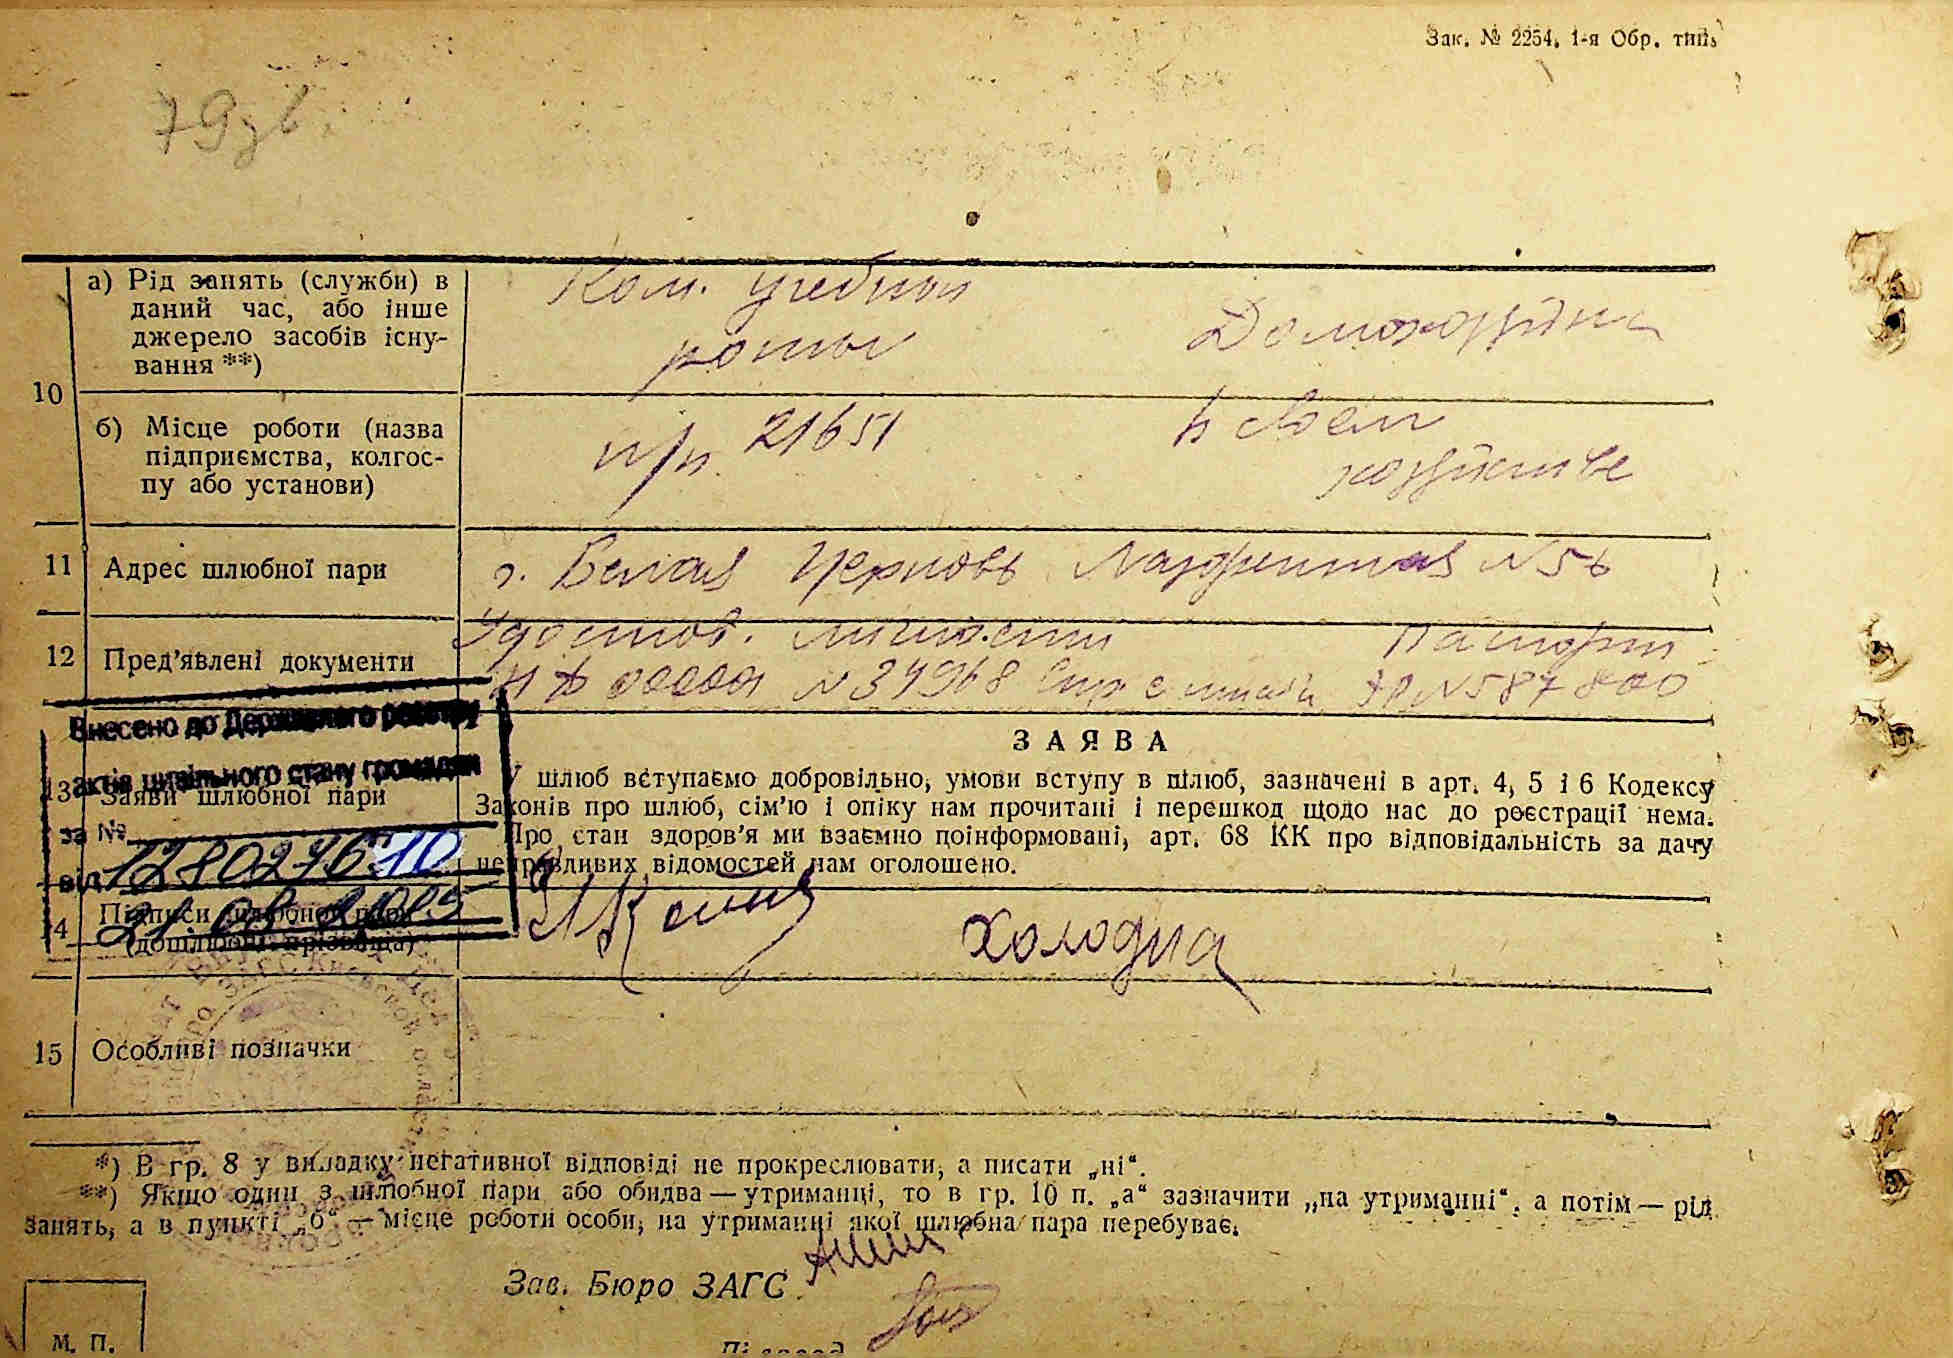 Зак. № 2254. 1-я Обр. тип.
а) Рід занять (служби) в
даний час, або інше
джерело засобів існу-
вання **)
Ком. учебной
роты
Домохозяйка
10
б) Місце роботи (назва
підприємства, колгос-
пу або установи)
п/п 21651
в своем
хозяйстве
11 Адрес шлюбної пари
г. Белая Церковь
12 Пред'явлені документи
Удостов. личности
№ 34968
Паспорт
№ 587800
Внесено до Державного реєстру
актів цивільного стану громадян
за №
від
13 Заяви шлюбної пари
ЗАЯВА
У шлюб вступаємо добровільно, умови вступу в шлюб, зазначені в арт. 4, 5 і 6 Кодексу
Законів про шлюб, сім'ю і опіку нам прочитані і перешкод щодо нас до реєстрації нема.
Про стан здоров'я ми взаємно поінформовані, арт. 68 КК про відповідальність за дачу
неправдивих відомостей нам оголошено.
14 Підписи шлюбної пари
(дошлюбні прізвища)
Холодна
15 Особливі позначки
*) В гр. 8 у випадку негативної відповіді не прокреслювати, а писати „ні“.
**) Якщо один з шлюбної пари або обидва — утриманці, то в гр. 10 п. „а“ зазначити „на утриманні“, а потім — рід
занять, а в пункті „б“ — місце роботи особи, на утриманні якої шлюбна пара перебуває.
Зав. Бюро ЗАГС
М. П.